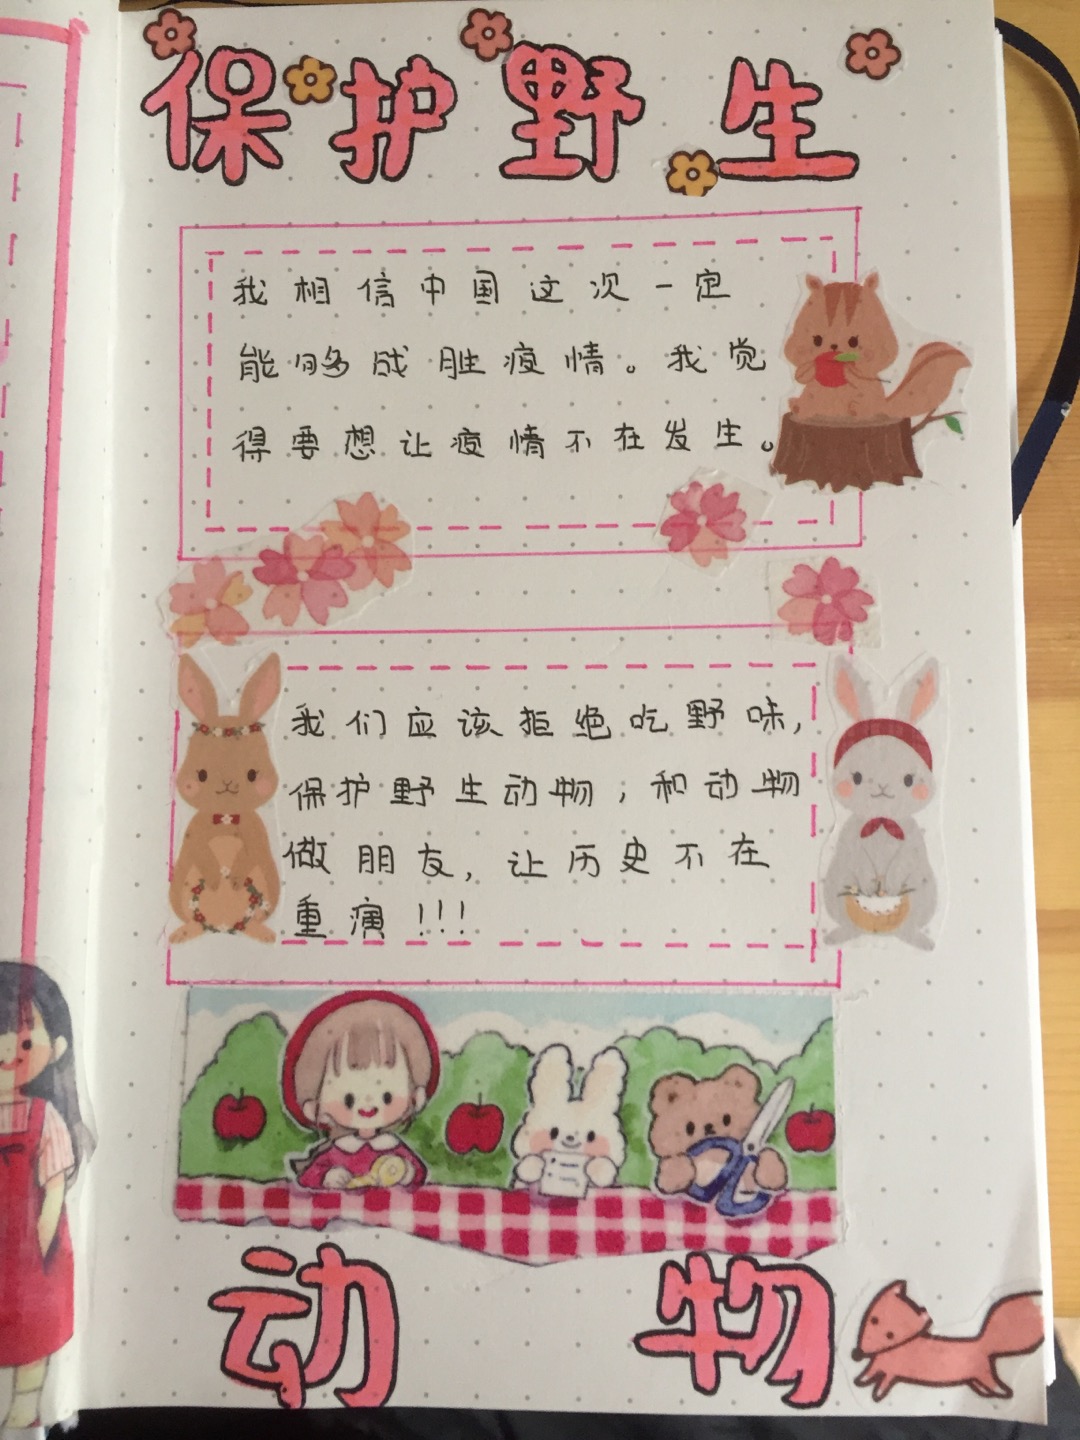 保护野生
我相信中国这次一定
能够战胜疫情。我觉
得要想让疫情不在发生。
我们应该拒绝吃野味,
保护野生动物;和动物
做朋友,让历史不在
重演!!!
动物